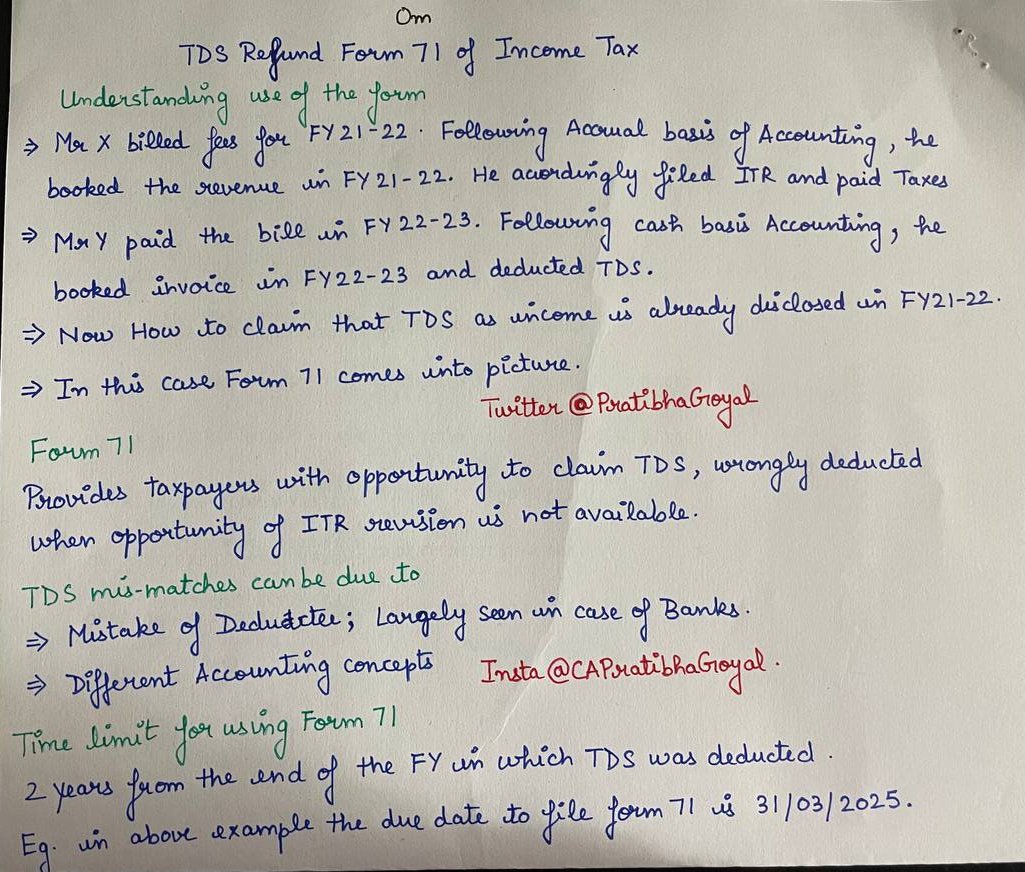 Om
TDS Refund Form 71 of Income Tax
Understanding use of the form
⇒ Mr X billed fees for FY 21-22. Following Accrual basis of Accounting, he
booked the revenue in FY 21-22. He accordingly filed ITR and paid Taxes
⇒ Mr Y paid the bill in FY 22-23. Following cash basis Accounting, he
booked invoice in FY22-23 and deducted TDS.
⇒ Now How to claim that TDS as income is already disclosed in FY21-22.
⇒ In this case Form 71 comes into picture.
Twitter @PratibhaGoyal
Form 71
Provides taxpayers with opportunity to claim TDS, wrongly deducted
when opportunity of ITR revision is not available.
TDS mis-matches can be due to
⇒ Mistake of Deductee; Largely seen in case of Banks.
⇒ Different Accounting concepts
Insta @CAPratibhaGoyal.
Time limit for using Form 71
2 years from the end of the FY in which TDS was deducted.
Eg. in above example the due date to file form 71 is 31/03/2025.